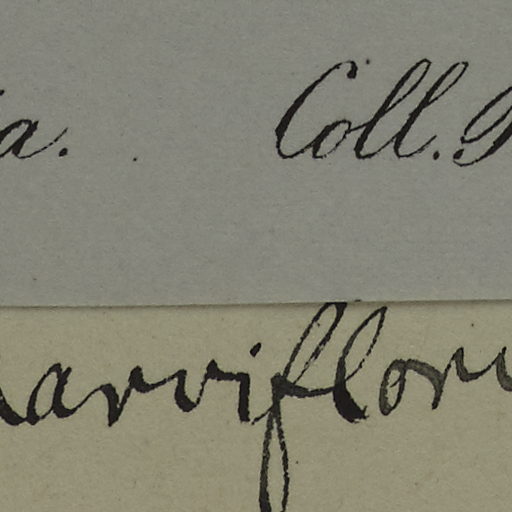 a. Coll.
arvifloru